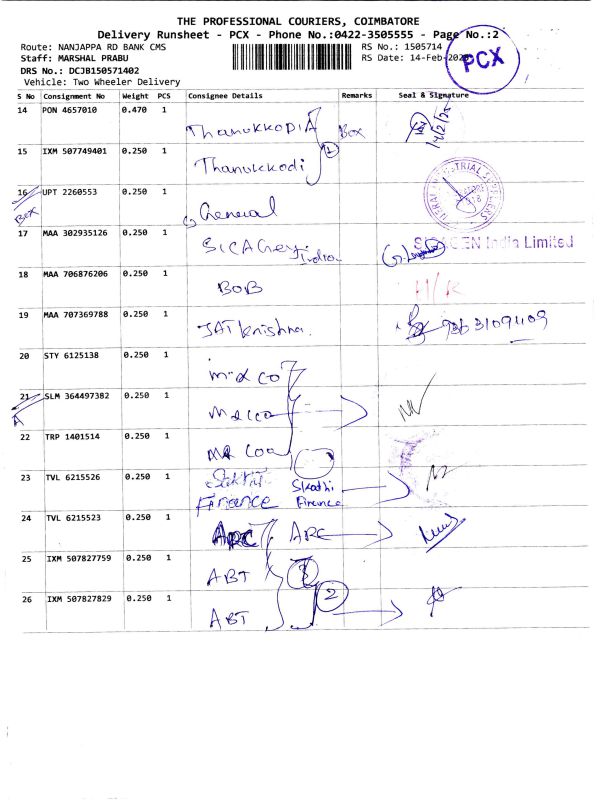 THE PROFESSIONAL COURIERS, COIMBATORE
Delivery Runsheet - PCX - Phone No.:0422-3505555 - Page No.:2
Route: NANJAPPA RD BANK CMS
RS No.: 1505714
Staff: MARSHAL PRABU
RS Date: 14-Feb-
PCX
DRS No.: DCJB150571402
Vehicle: Two Wheeler Delivery
S No Consignment No Weight PCS Consignee Details Remarks Seal & Signature
14 PON 4657010 0.470 1 Thanukkodi Box
15 IXM 507749401 0.250 1 Thanukkodi 1
16 UPT 2260553 0.250 1 General
Box
17 MAA 302935126 0.250 1 India
India Limited
18 MAA 706876206 0.250 1 BOB H/R
19 MAA 707369788 0.250 1 JAT Krishna. 9363109409
20 STY 6125138 0.250 1
21 SLM 364497382 0.250 1
A
22 TRP 1401514 0.250 1
23 TVL 6215526 0.250 1 Finance Finance
24 TVL 6215523 0.250 1 ARC
25 IXM 507827759 0.250 1 ABT
26 IXM 507827829 0.250 1 ABT 2